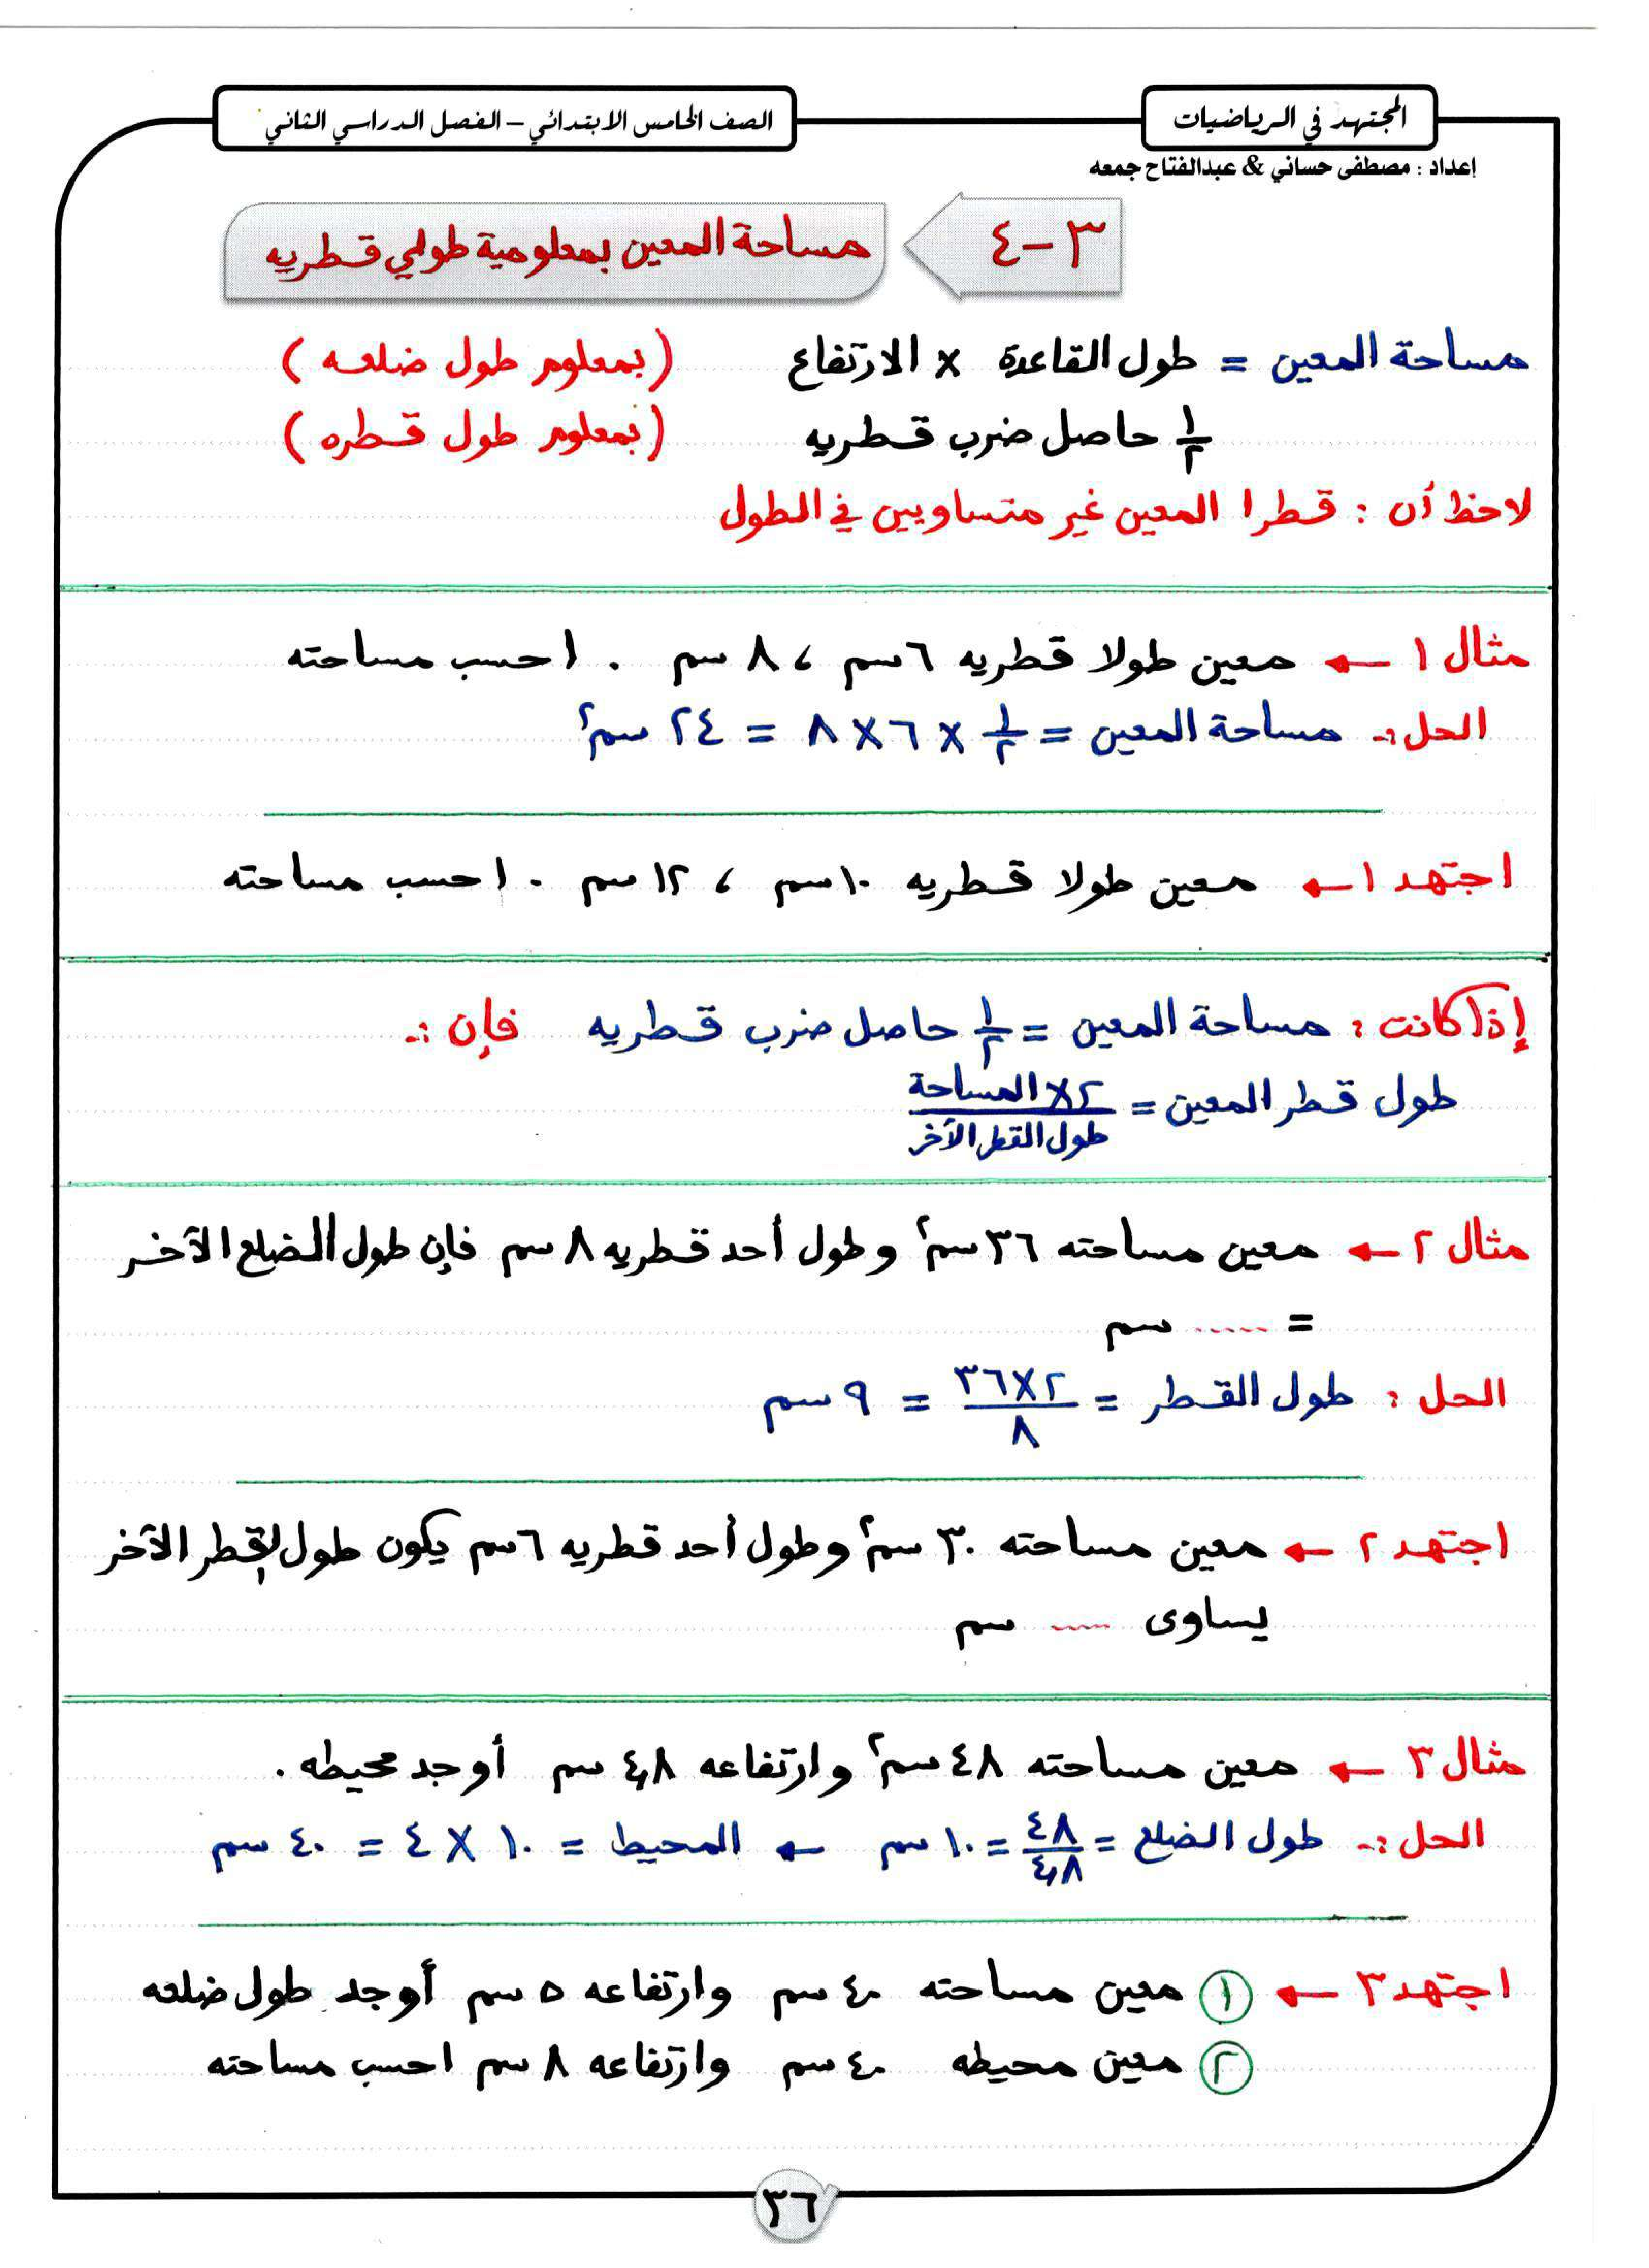 المجتهد في الرياضيات
الصف الخامس الابتدائي – الفصل الدراسي الثاني
إعداد : مصطفى حساني & عبدالفتاح جمعه
٣-٤
مساحة المعين بمعلومية طولي قطريه
مساحة المعين = طول القاعدة × الارتفاع (بمعلوم طول ضلعه)
١/٢ حاصل ضرب قطريه (بمعلوم طول قطره)
لاحظ أن : قطرا المعين غير متساويين في الطول
مثال ١ ← معين طولا قطريه ٦ سم ، ٨ سم . احسب مساحته
الحل :- مساحة المعين = ١/٢ × ٦ × ٨ = ٢٤ سم٢
اجتهد ١ ← معين طولا قطريه ١٠ سم ، ١٢ سم . احسب مساحته
إذا كانت : مساحة المعين = ١/٢ حاصل ضرب قطريه فإن :-
طول قطر المعين = ٢ × المساحة / طول القطر الآخر
مثال ٢ ← معين مساحته ٣٦ سم٢ وطول أحد قطريه ٨ سم فإن طول الضلع الآخر
= ...... سم
الحل : طول القطر = ٢ × ٣٦ / ٨ = ٩ سم
اجتهد ٢ ← معين مساحته ٣٠ سم٢ وطول أحد قطريه ٦ سم يكون طول القطر الآخر
يساوى ...... سم
مثال ٣ ← معين مساحته ٤٨ سم٢ وارتفاعه ٤,٨ سم أوجد محيطه .
الحل :- طول الضلع = ٤٨ / ٤,٨ = ١٠ سم ← المحيط = ١٠ × ٤ = ٤٠ سم
اجتهد ٣ ← ١ معين مساحته ٤٠ سم وارتفاعه ٥ سم أوجد طول ضلعه
٢ معين محيطه ٤٠ سم وارتفاعه ٨ سم احسب مساحته
٣٦